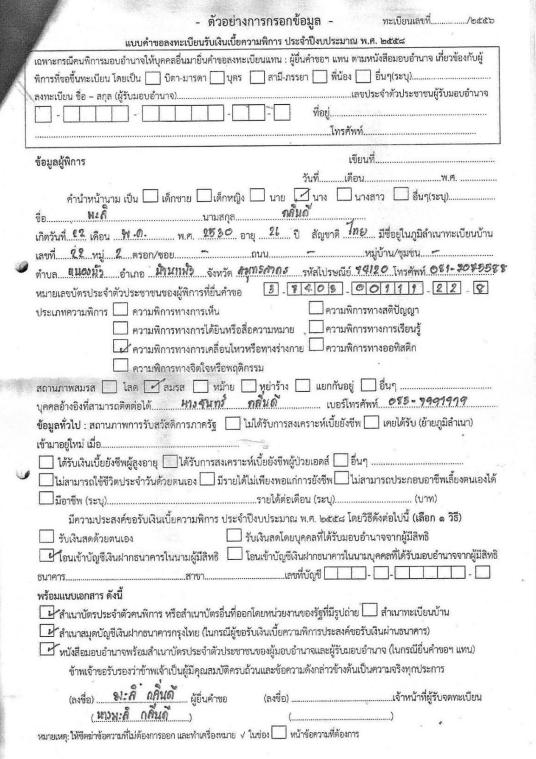 - ตัวอย่างการกรอกข้อมูล -
ทะเบียนเลขที่................./๒๕๕๖
แบบคำขอลงทะเบียนรับเงินเบี้ยความพิการ ประจำปีงบประมาณ พ.ศ. ๒๕๕๘
เฉพาะกรณีคนพิการมอบอำนาจให้บุคคลอื่นมายื่นคำขอลงทะเบียนแทน : ผู้ยื่นคำขอฯ แทน ตามหนังสือมอบอำนาจ เกี่ยวข้องกับผู้
พิการที่ขอขึ้นทะเบียน โดยเป็น ☐ บิดา-มารดา ☐ บุตร ☐ สามี-ภรรยา ☐ พี่น้อง ☐ อื่นๆ(ระบุ)..................
ลงทะเบียน ชื่อ – สกุล (ผู้รับมอบอำนาจ)..................เลขประจำตัวประชาชนผู้รับมอบอำนาจ
ที่อยู่..................
..................โทรศัพท์..................
ข้อมูลผู้พิการ เขียนที่..................
วันที่...........เดือน..................พ.ศ. ...........
คำนำหน้านาม เป็น ☐ เด็กชาย ☐ เด็กหญิง ☐ นาย ☑ นาง ☐ นางสาว ☐ อื่นๆ(ระบุ)...........
ชื่อ มะลิ นามสกุล กลิ่นดี
เกิดวันที่ 22 เดือน พ.ค. พ.ศ. 2530 อายุ 26 ปี สัญชาติ ไทย มีชื่ออยู่ในภูมิลำเนาทะเบียนบ้าน
เลขที่ 22 หมู่ 2 ตรอก/ซอย - ถนน - หมู่บ้าน/ชุมชน -
ตำบล หนองบัว อำเภอ บ้านแพ้ว จังหวัด สมุทรสาคร รหัสไปรษณีย์ 74120 โทรศัพท์ 081-3075588
หมายเลขบัตรประจำตัวประชาชนของผู้พิการที่ยื่นคำขอ 3-7403-00111-22-8
ประเภทความพิการ ☐ ความพิการทางการเห็น ☐ ความพิการทางสติปัญญา
☐ ความพิการทางการได้ยินหรือสื่อความหมาย ☐ ความพิการทางการเรียนรู้
☑ ความพิการทางการเคลื่อนไหวหรือทางร่างกาย ☐ ความพิการทางออทิสติก
☐ ความพิการทางจิตใจหรือพฤติกรรม
สถานภาพสมรส ☐ โสด ☑ สมรส ☐ หม้าย ☐ หย่าร้าง ☐ แยกกันอยู่ ☐ อื่นๆ ...........
บุคคลอ้างอิงที่สามารถติดต่อได้ นางจันทร์ กลิ่นดี เบอร์โทรศัพท์ 085-9991979
ข้อมูลทั่วไป : สถานภาพการรับสวัสดิการภาครัฐ ☐ ไม่ได้รับการสงเคราะห์เบี้ยยังชีพ ☐ เคยได้รับ (ย้ายภูมิลำเนา)
เข้ามาอยู่ใหม่ เมื่อ..................
☐ ได้รับเงินเบี้ยยังชีพผู้สูงอายุ ☐ ได้รับการสงเคราะห์เบี้ยยังชีพผู้ป่วยเอดส์ ☐ อื่นๆ ..................
☐ ไม่สามารถใช้ชีวิตประจำวันด้วยตนเอง ☐ มีรายได้ไม่เพียงพอแก่การยังชีพ ☐ ไม่สามารถประกอบอาชีพเลี้ยงตนเองได้
☐ มีอาชีพ (ระบุ)..................รายได้ต่อเดือน (ระบุ)..................(บาท)
มีความประสงค์ขอรับเงินเบี้ยความพิการ ประจำปีงบประมาณ พ.ศ. ๒๕๕๘ โดยวิธีดังต่อไปนี้ (เลือก ๑ วิธี)
☐ รับเงินสดด้วยตนเอง ☐ รับเงินสดโดยบุคคลที่ได้รับมอบอำนาจจากผู้มีสิทธิ
☑ โอนเข้าบัญชีเงินฝากธนาคารในนามผู้มีสิทธิ ☐ โอนเข้าบัญชีเงินฝากธนาคารในนามบุคคลที่ได้รับมอบอำนาจจากผู้มีสิทธิ
ธนาคาร..................สาขา..................เลขที่บัญชี
พร้อมแนบเอกสาร ดังนี้
☑ สำเนาบัตรประจำตัวคนพิการ หรือสำเนาบัตรอื่นที่ออกโดยหน่วยงานของรัฐที่มีรูปถ่าย ☐ สำเนาทะเบียนบ้าน
☑ สำเนาสมุดบัญชีเงินฝากธนาคารกรุงไทย (ในกรณีผู้ขอรับเงินเบี้ยความพิการประสงค์ขอรับเงินผ่านธนาคาร)
☑ หนังสือมอบอำนาจพร้อมสำเนาบัตรประจำตัวประชาชนของผู้มอบอำนาจและผู้รับมอบอำนาจ (ในกรณียื่นคำขอฯ แทน)
ข้าพเจ้าขอรับรองว่าข้าพเจ้าเป็นผู้มีคุณสมบัติครบถ้วนและข้อความดังกล่าวข้างต้นเป็นความจริงทุกประการ
(ลงชื่อ) มะลิ กลิ่นดี ผู้ยื่นคำขอ (ลงชื่อ) ..................เจ้าหน้าที่ผู้รับจดทะเบียน
(นางมะลิ กลิ่นดี) (..................)
หมายเหตุ: ให้ขีดฆ่าข้อความที่ไม่ต้องการออก และทำเครื่องหมาย √ ในช่อง ☐ หน้าข้อความที่ต้องการ